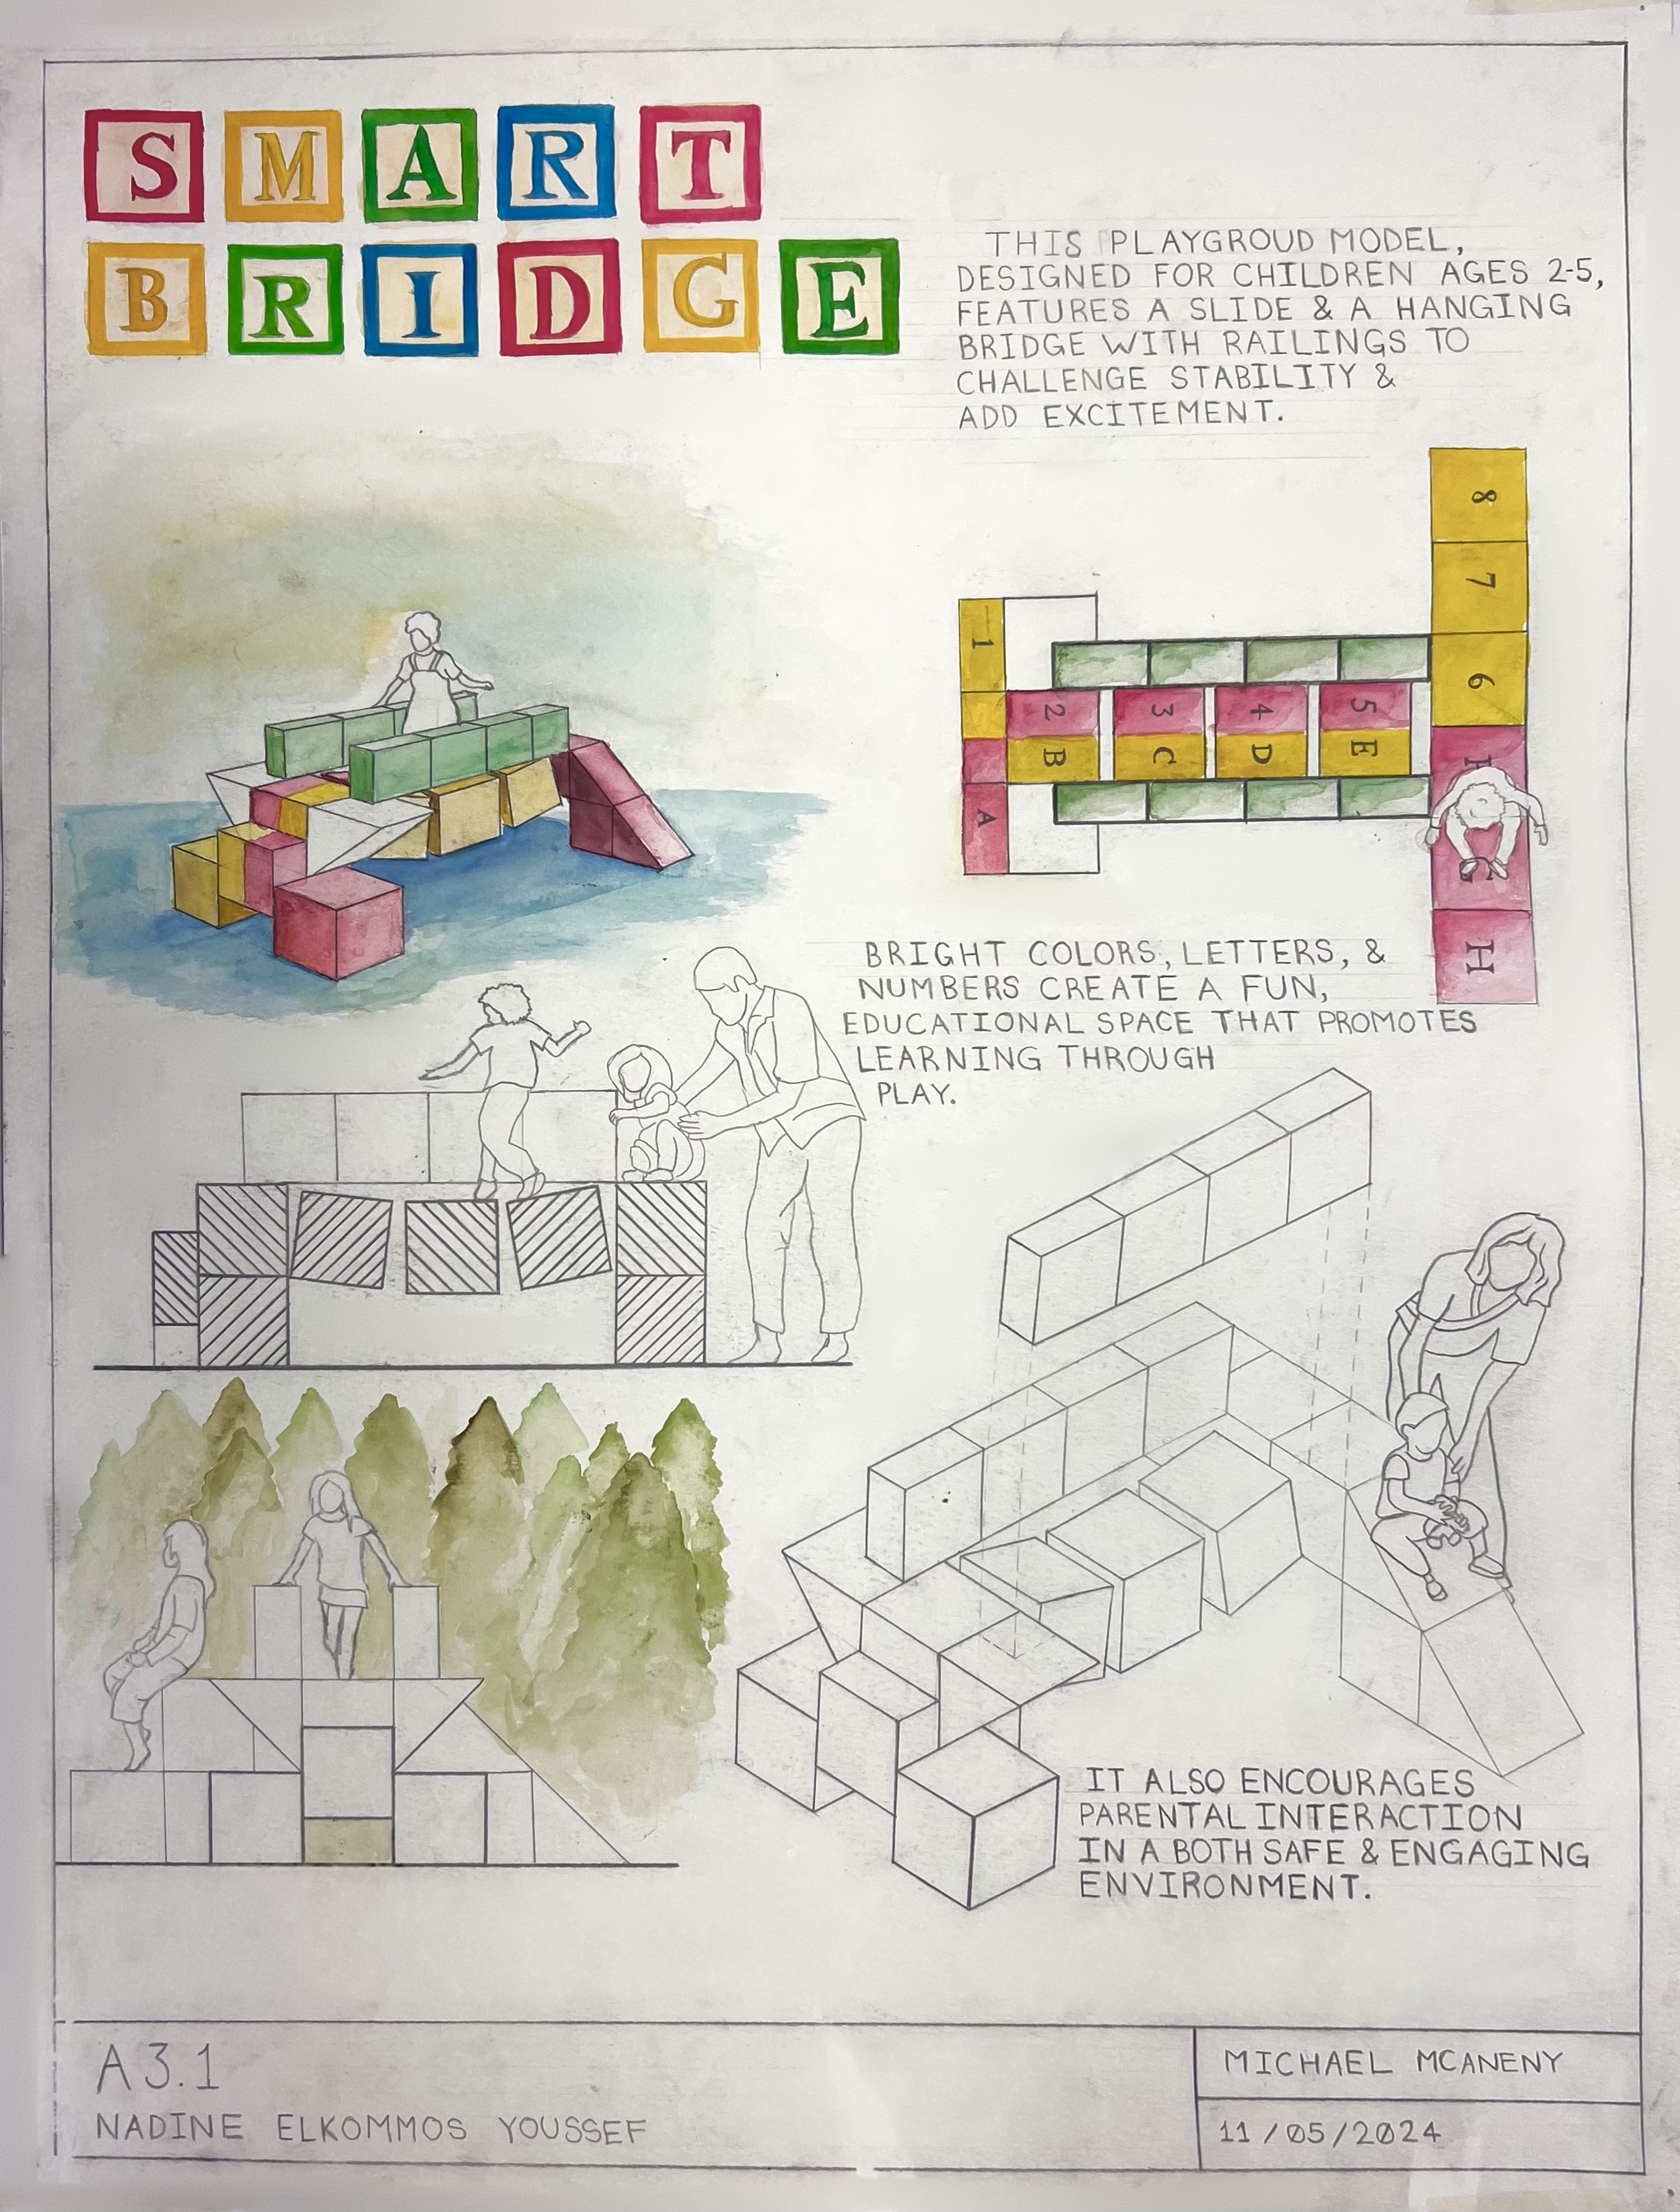 SMART
BRIDGE
THIS PLAYGROUD MODEL,
DESIGNED FOR CHILDREN AGES 2-5,
FEATURES A SLIDE & A HANGING
BRIDGE WITH RAILINGS TO
CHALLENGE STABILITY &
ADD EXCITEMENT.
8
7
6
1
2 3 4 5
B C D E
A
H
BRIGHT COLORS, LETTERS, &
NUMBERS CREATE A FUN,
EDUCATIONAL SPACE THAT PROMOTES
LEARNING THROUGH
PLAY.
IT ALSO ENCOURAGES
PARENTAL INTERACTION
IN A BOTH SAFE & ENGAGING
ENVIRONMENT.
A3.1
NADINE ELKOMMOS YOUSSEF
MICHAEL MCANENY
11/05/2024